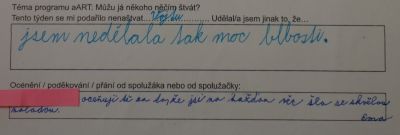 Téma programu aART: Můžu já někoho něčím štvát?
Tento týden se mi podařilo nenaštvat....Vojtu............ Udělal/a jsem jinak to, že…
jsem nedělala tak moc blbosti.
Ocenění / poděkování / přání od spolužáka nebo od spolužačky:
oceňuji tě za to, že jsi na každou věc šla se skvělou
náladou.
Ema